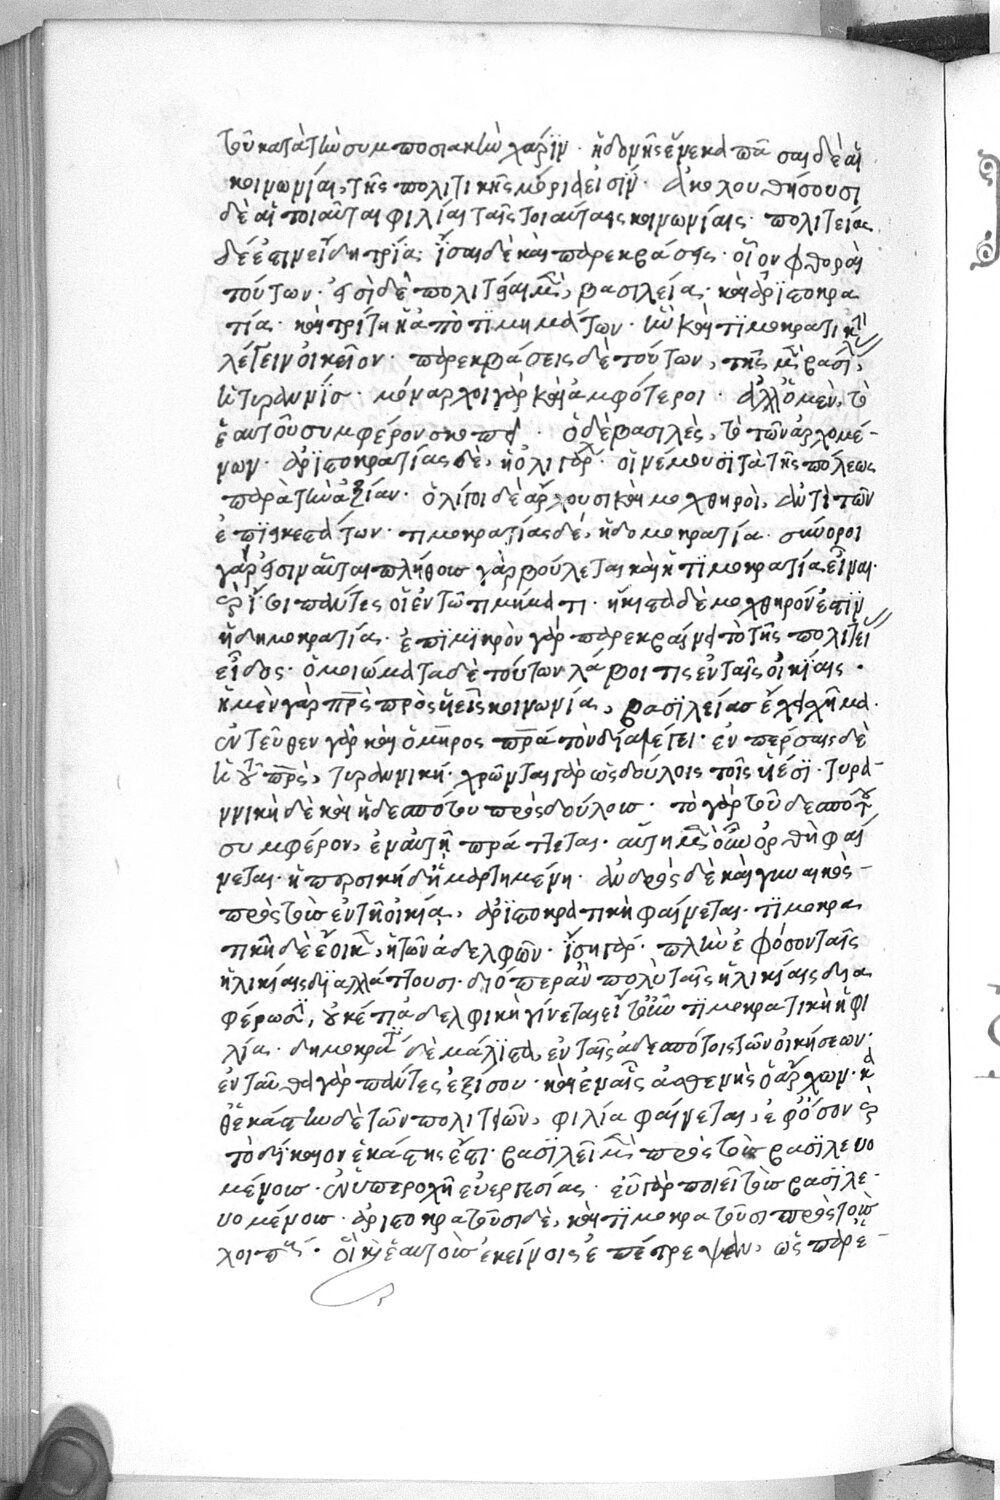 τοῦ κατὰ τὴν συμποσιακὴν χάριν · ἡδονῆς ἕνεκα πᾶσαι δὲ αἱ
κοινωνίαι, τῆς πολιτικῆς μόρια εἰσίν · ἀκολουθήσουσι
δὲ αἱ τοιαῦται φιλίαι ταῖς τοιαύταις κοινωνίαις · πολιτείας
δέ ἐστιν εἴδη τρία · ἴσαι δὲ καὶ παρεκβάσεις · οἷον φθοραὶ
τούτων · εἰσὶ δὲ πολιτεῖαι μὲν, βασιλεία · καὶ ἀριστοκρα
τία · καὶ τρίτη ἡ ἀπὸ τιμημάτων · ἣν καὶ τιμοκρατικὴ
λέγειν οἰκεῖον · παρεκβάσεις δὲ τούτων, τῆς μὲν βασι,
ἡ τυραννίς · μόναρχοι γὰρ καὶ ἀμφότεροι · ἀλλ' ὁ μὲν, τὸ
ἑαυτοῦ συμφέρον σκοπεῖ · ὁ δὲ βασιλεὺς, τὸ τῶν ἀρχομέ-
νων · ἀριστοκρατίας δὲ, ἡ ὀλιγαρ · οἳ νέμουσι τὰ τῆς πόλεως
παρὰ τὴν ἀξίαν · ὀλίγοι δὲ ἄρχουσι καὶ μοχθηροὶ, ἀντὶ τῶν
ἐπιεικεστάτων · τιμοκρατίας δέ, ἡ δημοκρατία · σύνοροι
γάρ εἰσιν αὗται πλήθους γὰρ βούλεται καὶ ἡ τιμοκρατία εἶναι ·
καὶ ἴσοι πάντες οἱ ἐν τῷ τιμήματι · ἥκιστα δὲ μοχθηρόν ἐστιν
ἡ δημοκρατίας · ἐπὶ μικρὸν γὰρ παρεκβαίνει τὸ τῆς πολιτεί
εἶδος · ὁμοιώματα δὲ τούτων λάβοι τις ἐν ταῖς οἰκίαις ·
ἡ μὲν γὰρ πρς πρὸς υἱεῖς κοινωνία, βασιλείας ἔχει σχῆμα ·
ἐντεῦθεν γὰρ καὶ ὅμηρος πρα τὸν δία λέγει · ἐν πέρσαις δὲ
ἡ τοῦ πρς, τυραννική · χρῶνται γὰρ ὡς δούλοις τοῖς υἱέσι · τυρα-
ννικὴ δὲ καὶ ἡ δεσπότου πρὸς δούλους · τὸ γὰρ τοῦ δεσπότου
συμφέρον, ἐν αὐτῇ πράττεται · αὕτη μὲν οὖν ὀρθὴ φαί
νεται · ἡ περσικὴ δὲ ἡμαρτημένη · ἀνδρὸς δὲ καὶ γυναικὸς-
πρὸς τοὺς ἐν τῇ οἰκία, ἀριστοκρατικὴ φαίνεται · τιμοκρα
τικῆ δὲ ἔοικε, ἡ τῶν ἀδελφῶν · ἴση γάρ · πλὴν ἐφόσον ταῖς
ἡλικίαις διαλλάττουσι · διόπερ ἂν πολὺ ταῖς ἡλικίαις δια
φέρωσι, οὐκέτι ἀδελφικὴ γίνεται εἴτουν τιμοκρατικὴ ἡ φι
λία · δημοκρατία δὲ μάλιστα, ἐν ταῖς ἀδεσπότοις τῶν οἰκήσεων ·
ἐνταῦθα γὰρ πάντες ἐξίσου · καὶ ἐν αἷς ἀσθενὴς ὁ ἄρχων · κα
θ' ἑκάστην δὲ τῶν πολιτειῶν, φιλία φαίνεται, ἐφόσον καὶ
τὸ δίκαιον ἑκάστης ἔστι · βασιλεῖ μὲν πρὸς τοὺς βασιλευο
μένους · ἐν ὑπεροχῆ εὐεργεσίας · εὖ γὰρ ποιεῖ τοὺς βασιλε-
υομένους · ἀριστοκρατοῦσι δὲ, καὶ τιμοκρατοῦσι πρὸς τοὺς
λοιπούς · οἳ καὶ ἑαυτοὺς ἐκείνοις ἐπέτρεψαν, ὡς παρὲ-